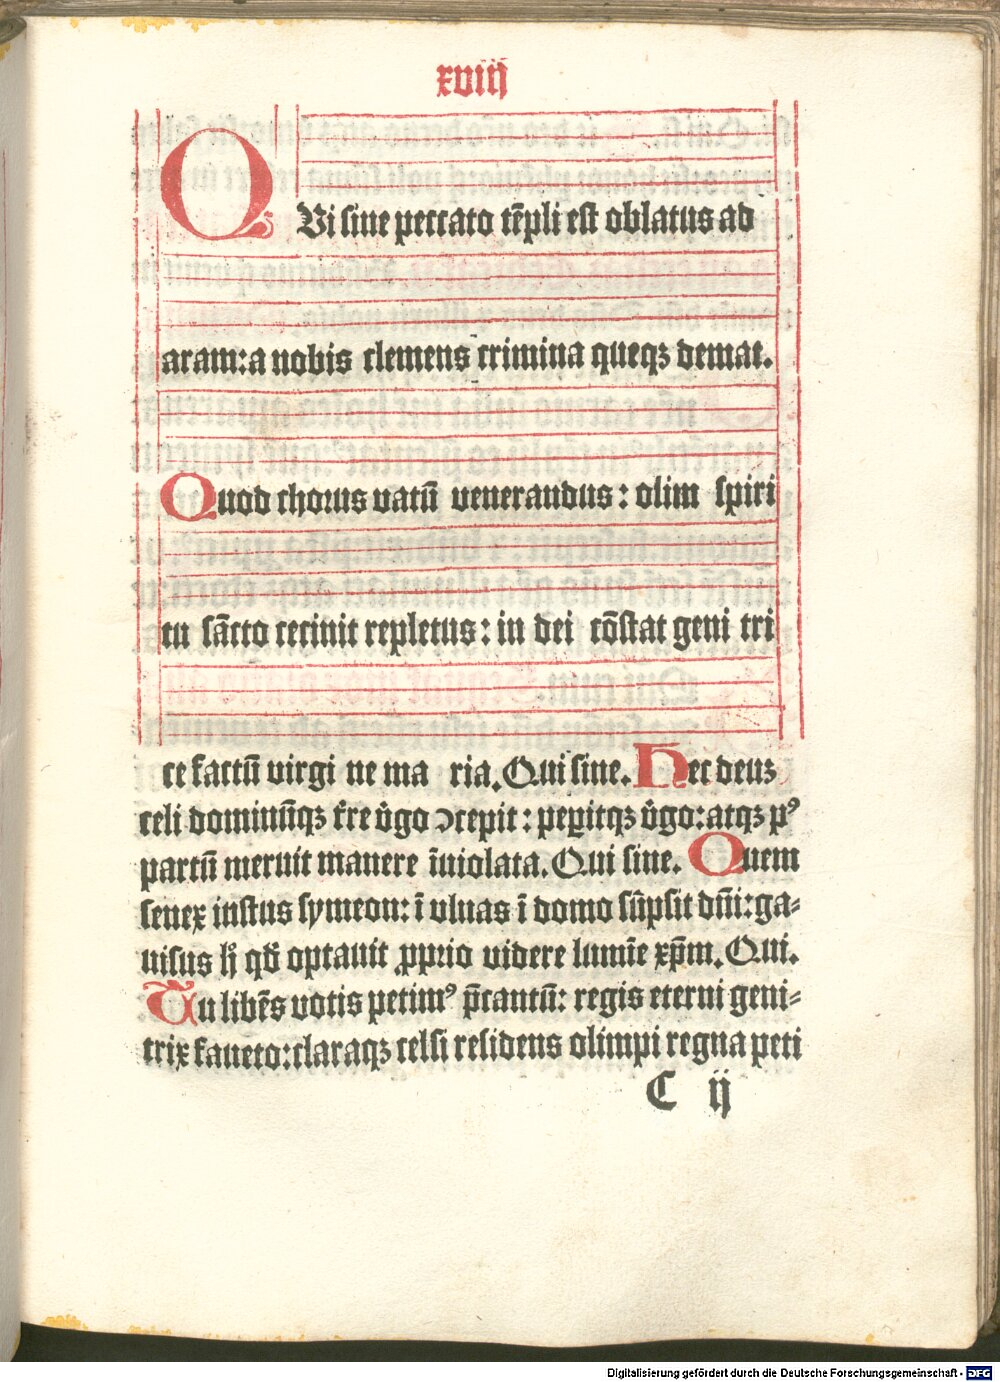 xviij
QVi sine peccato tēpli est oblatus ad
aram:a nobis clemens crimina queqʒ demat.
Quod chorus vatū venerandus: olim spiri
tu sācto cecinit repletus: in dei cōstat geni tri
ce factū virgi ne ma ria. Qui sine. Hec deuʒ
celi dominūqʒ t̄re v̄go ↄcepit: peperitqʒ v̄go:atqʒ pꝰ
partū meruit manere īuiolata. Qui sine. Quem
senex iustus symeon: ī vlnas ī domo sūpsit dn̄i:ga⸗
uisus hͥ qd̄ optauit ꝓprio videre lumīe xp̄m. Qui.
Tu libēs votis petimꝰ p̄cantū: regis eterni geni⸗
trix faueto:claraqʒ celsi residens olimpi regna peti
C ij
Digitalisierung gefördert durch die Deutsche Forschungsgemeinschaft - DFG